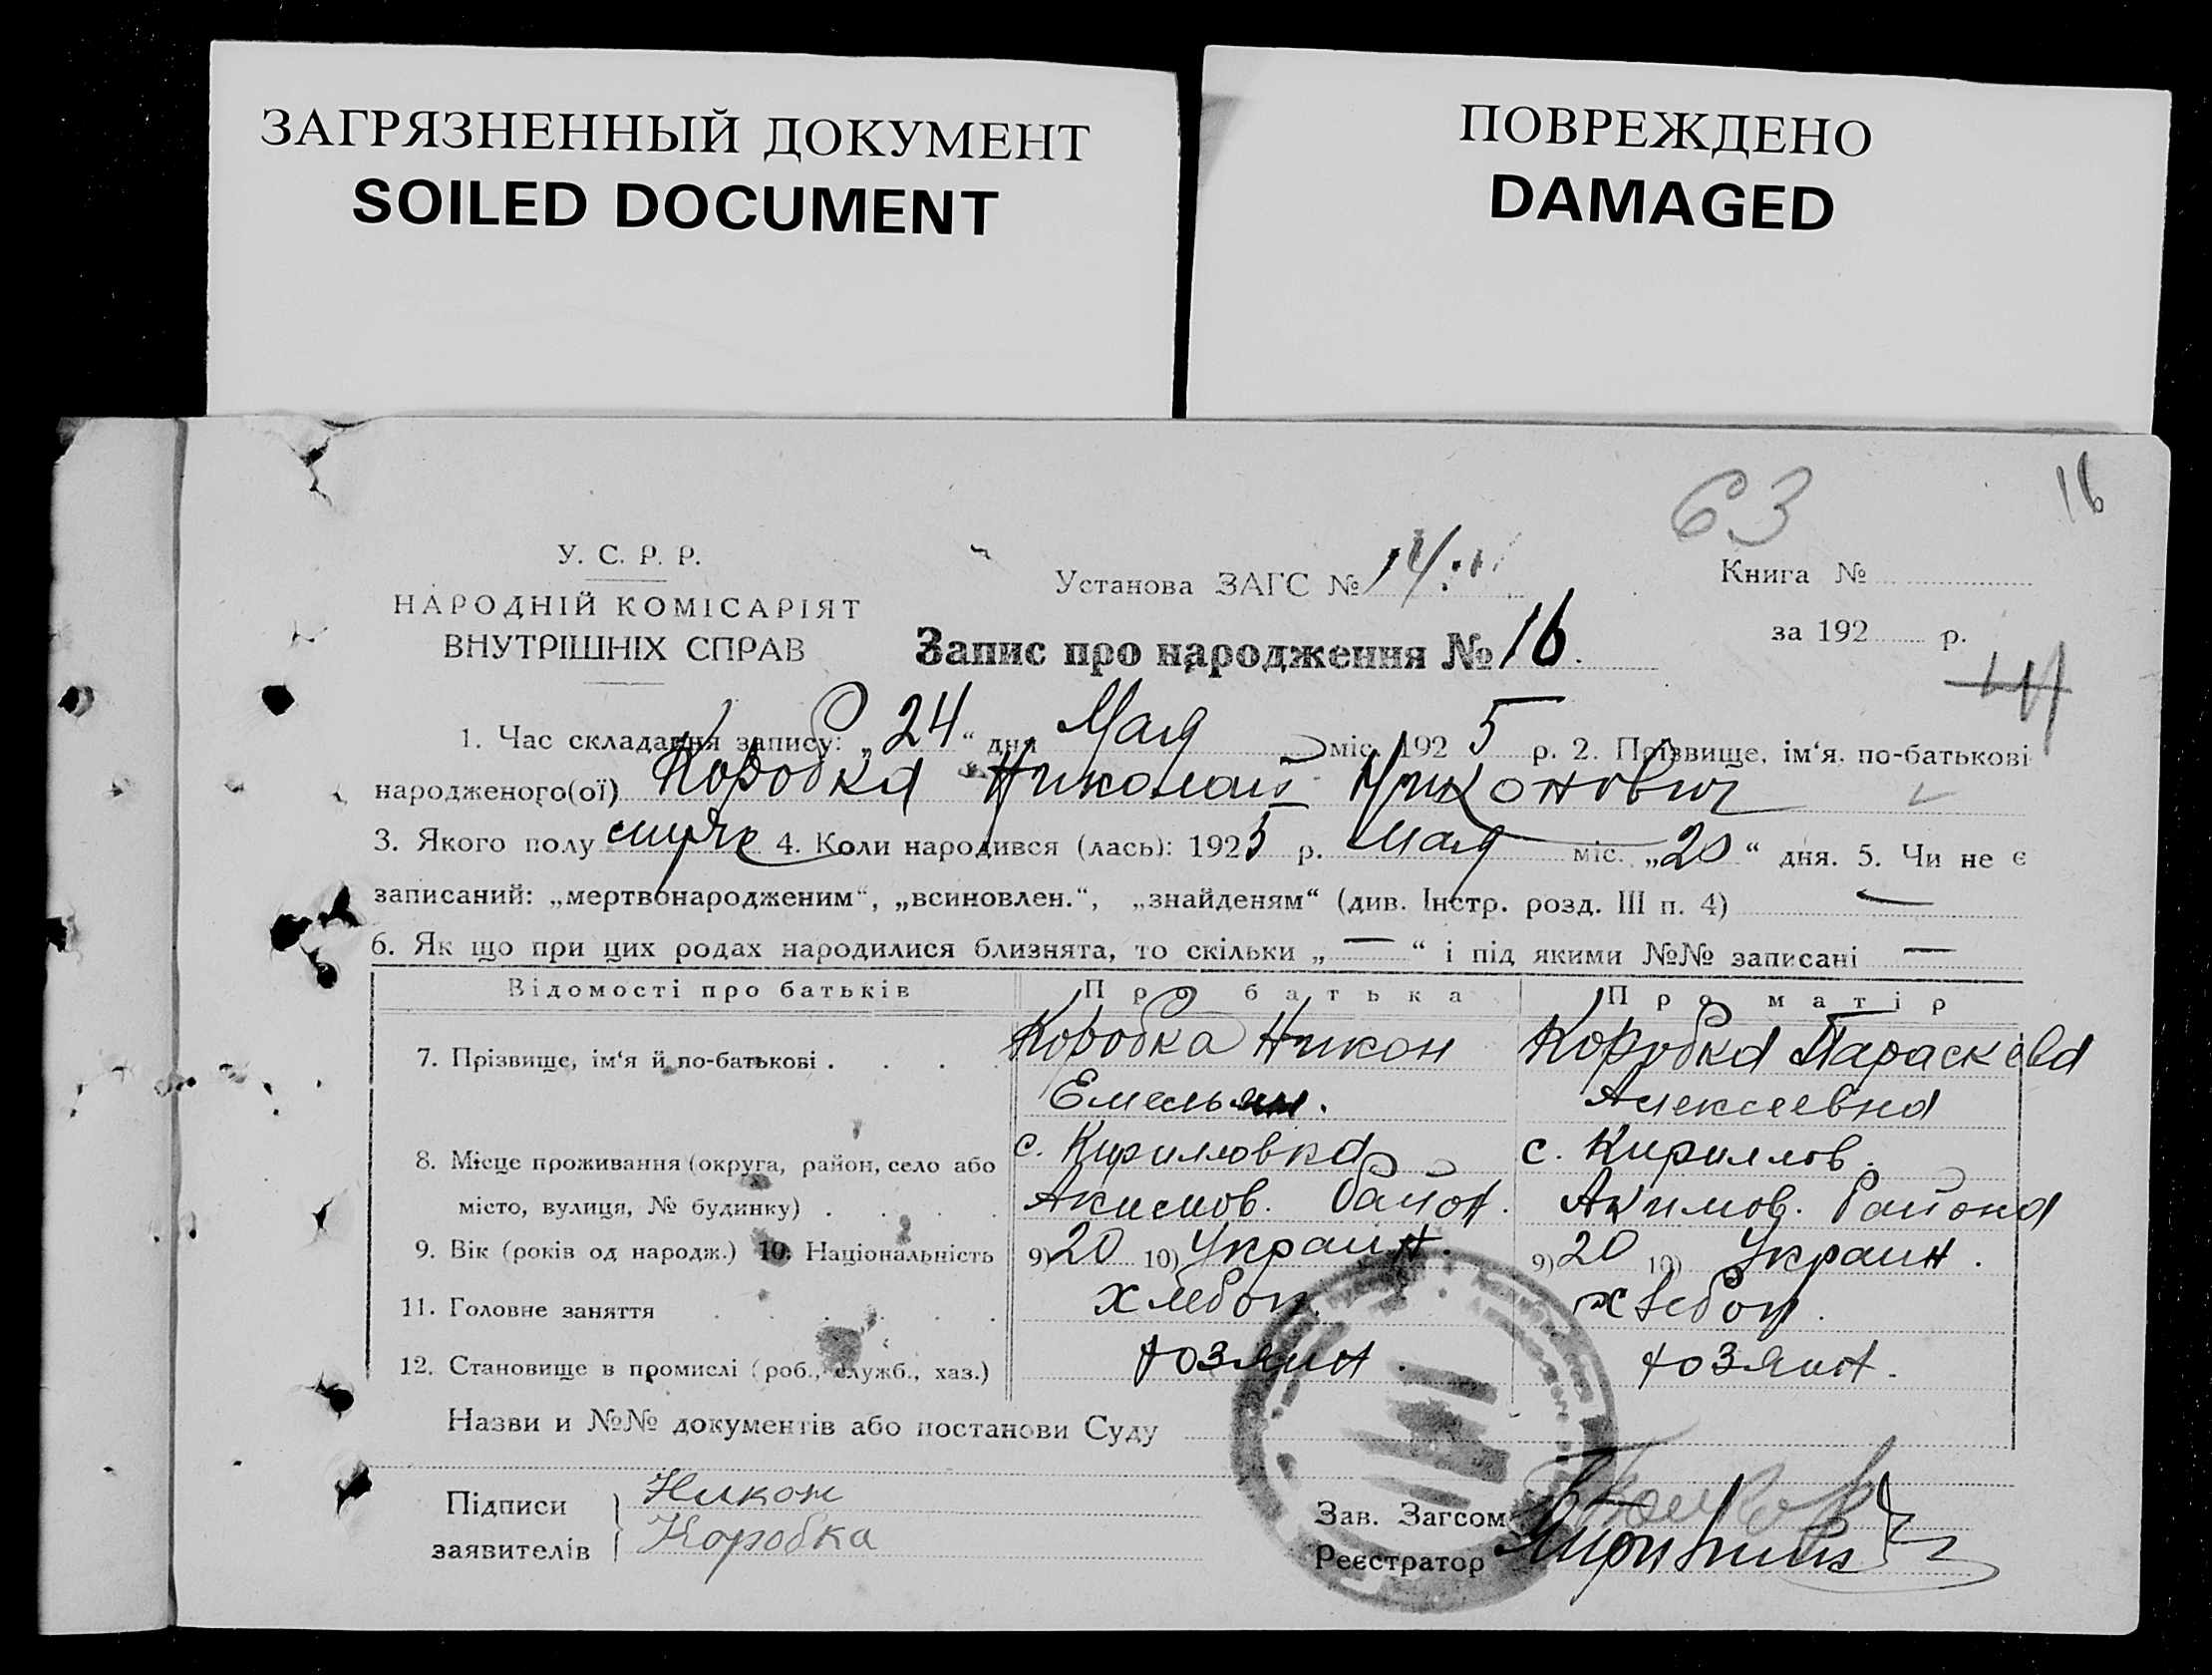 ЗАГРЯЗНЕННЫЙ ДОКУМЕНТ
SOILED DOCUMENT
ПОВРЕЖДЕНО
DAMAGED
63
16
У. С. Р. Р.
НАРОДНІЙ КОМІСАРІЯТ
ВНУТРІШНІХ СПРАВ
Установа ЗАГС № 14
Запис про народження № 16.
Книга №
за 192 р.
1. Час складання запису: „24“ дня Мая міс. 1925 р. 2. Прізвище, ім‘я. по-батькові
народженого(ої) Коробка Николай Никонович
3. Якого полу муже 4. Коли народився (лась): 1925 р. мая міс. „20“ дня. 5. Чи не є
записаний: „мертвонародженим“, „всиновлен.“, „знайденям“ (див. Інстр. розд. III п. 4) —
6. Як що при цих родах народилися близнята, то скільки „—“ і під якими №№ записані —
Відомості про батьків Про батька Про матір
7. Прізвище, ім‘я й по-батькові . . . . Коробка Никон Коробка Параскева
Емельян. Алексеевна
8. Місце проживання (округа, район, село або с. Кирилловка с. Кириллов.
місто, вулиця, № будинку) . . . . Акимов. район. Акимов. района
9. Вік (років од народж.) 10. Національність 9) 20 10) Украин. 9) 20 10) Украин.
11. Головне заняття . . . . . . хлебоп. хлебоп.
12. Становище в промислі (роб., служб., хаз.) хозяин. хозяин.
Назви и №№ документів або постанови Суду
Підписи Никон
заявителів Коробка
Зав. Загсом
Реєстратор